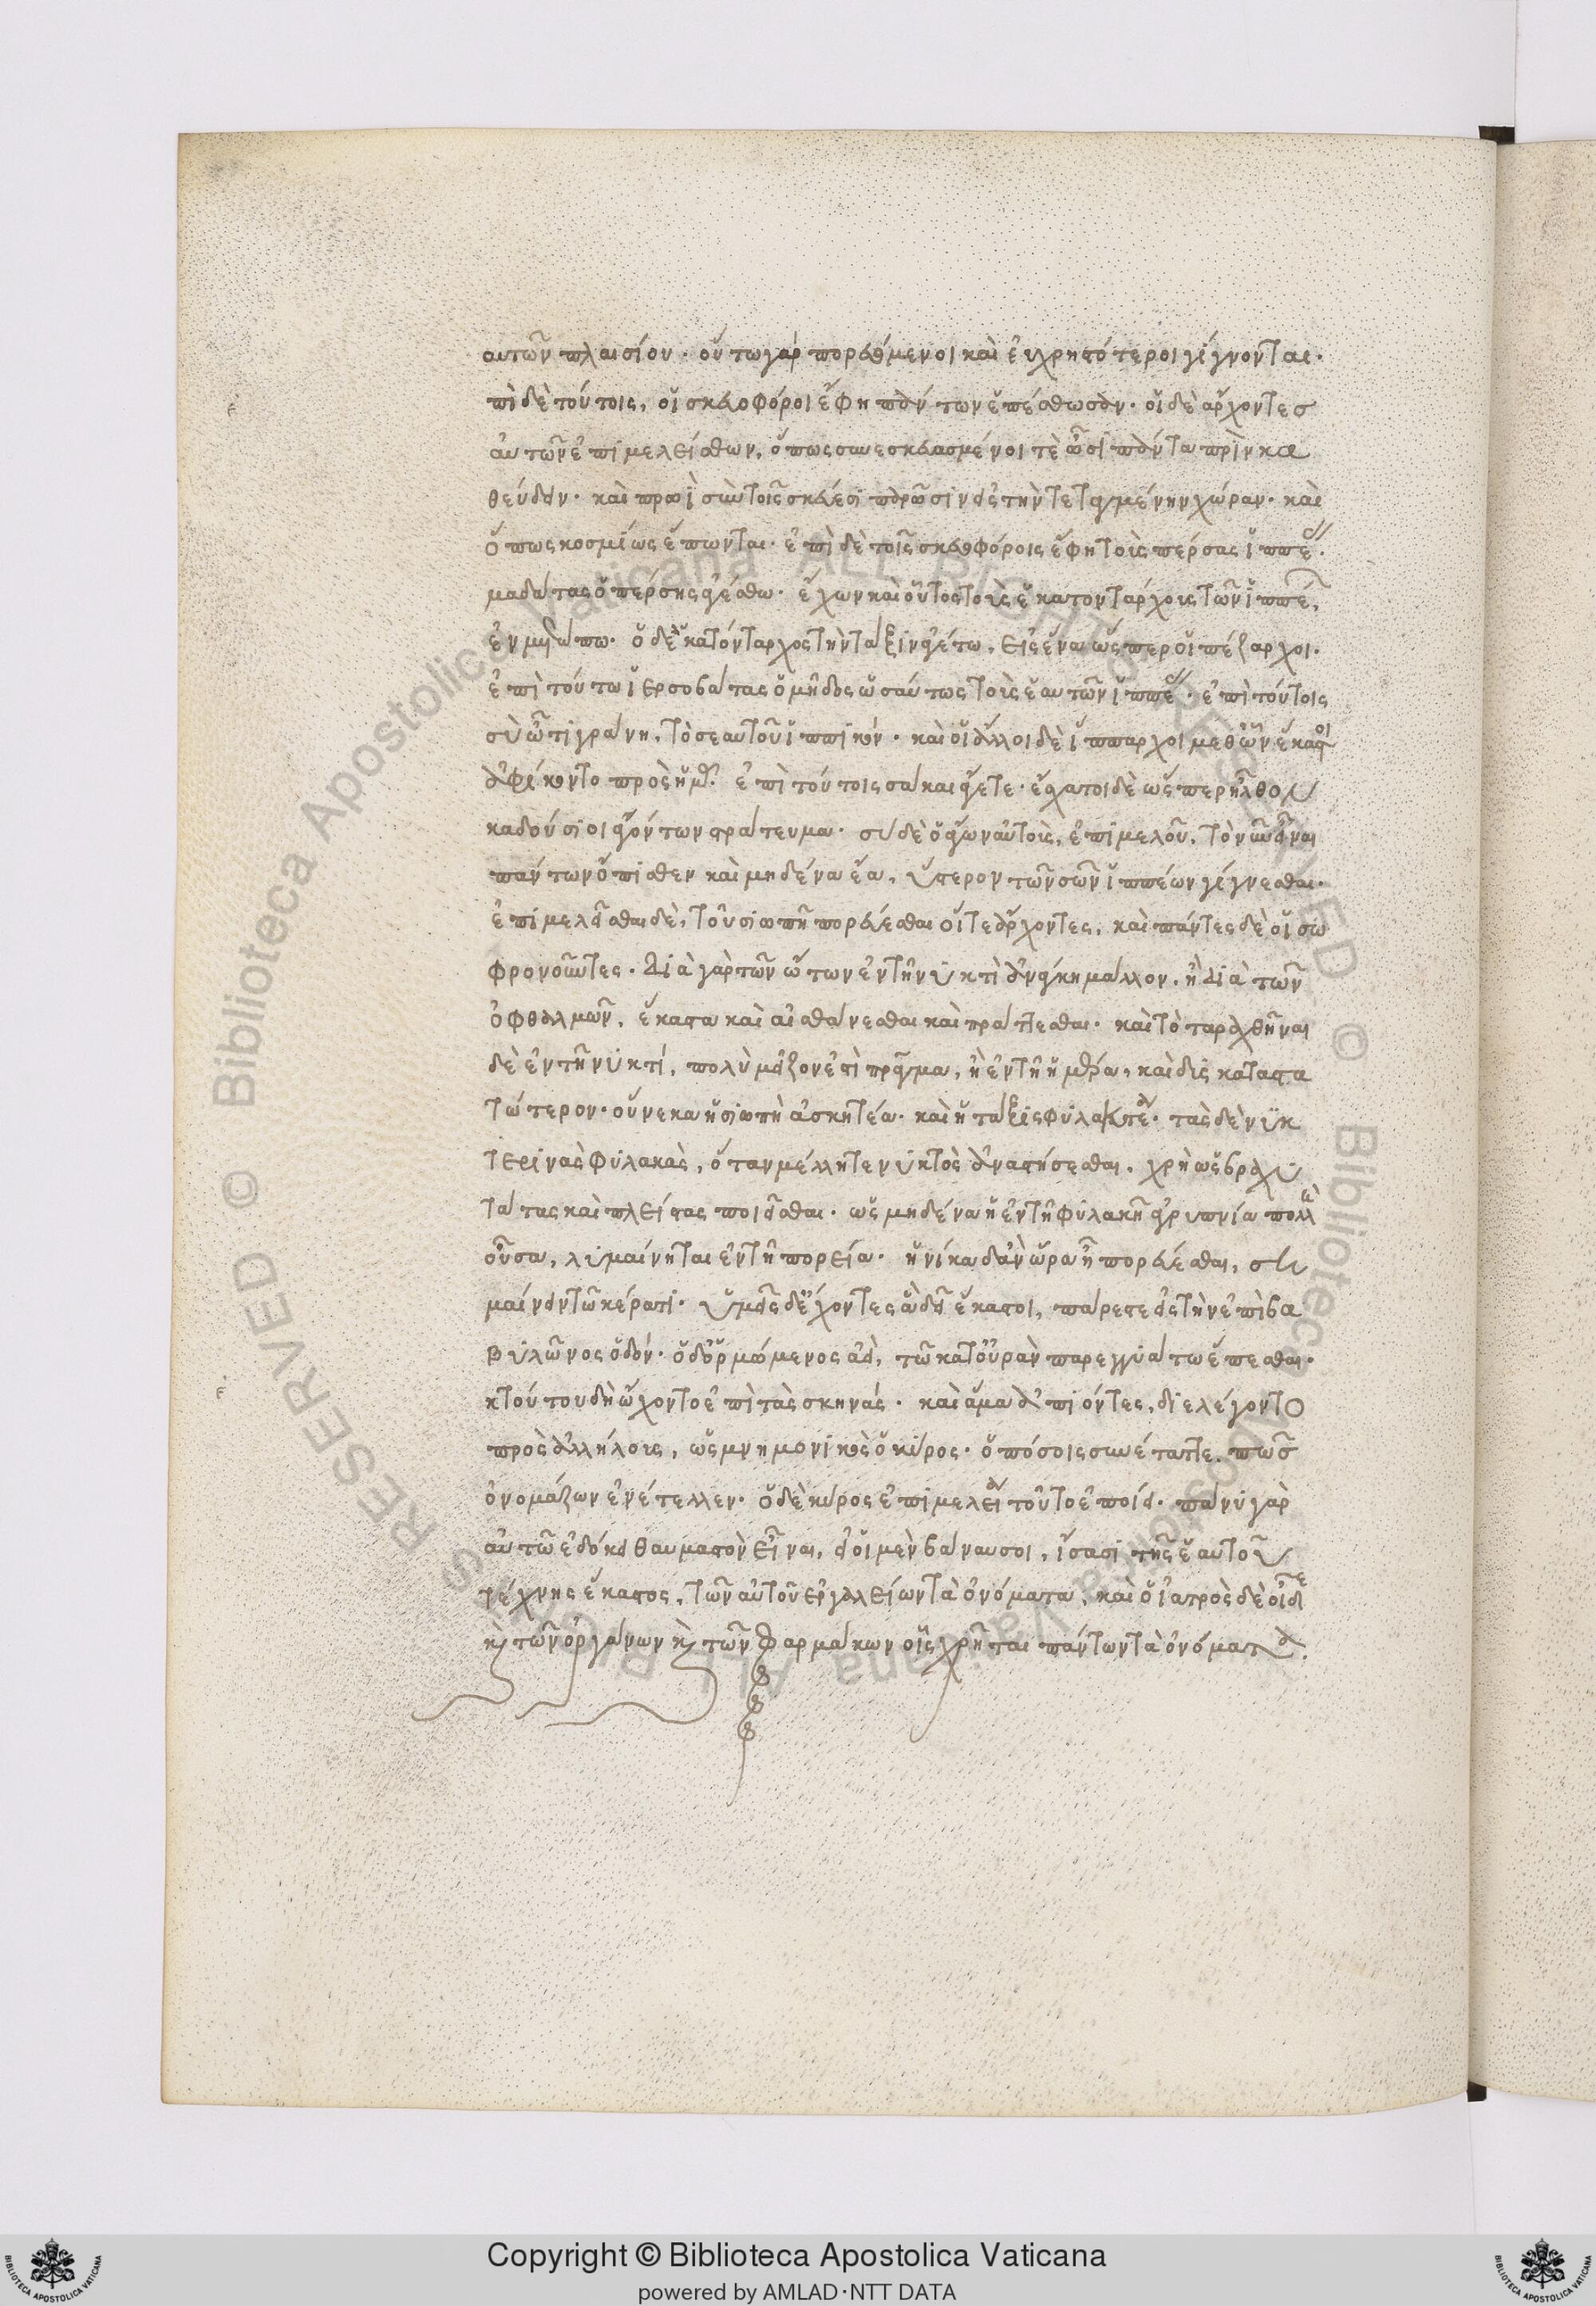 αυτῶν πλαισίον. οὕτω γὰρ πορευόμενοι καὶ εὐχρηστότεροι γίγνονται.
πὶ δὲ τούτοις, οἱ σκευοφόροι ἔφη πάντων ἑπέσθωσαν. οἱ δὲ ἄρχοντες
αὐτῶν ἐπιμελείσθων, ὅπως συνεσκευασμένοι τὲ ὦσι πάντα πρὶν κα
θεύδειν. καὶ πρωῒ σὺν τοῖς σκεύεσι παρῶσιν εἰς τὴν τεταγμένην χώραν. καὶ
ὅπως κοσμίως ἕπωνται. ἐπὶ δὲ τοῖς σκευοφόροις ἔφη τοὺς πέρσας ἱππεῖς.
μαδάτας ὁ πέρσης ἀγέσθω. ἔχων καὶ οὗτος τοὺς ἑκατοντάρχους τῶν ἱππέων,
ἐν μετώπω. ὁ δὲ ἑκατόνταρχος τὴν τάξιν ἀγέτω, εἰς ἕνα ὥσπερ οἱ πέζαρχοι.
ἐπὶ τούτω ἱερσοβάτας ὁ μῆδος ὡσαύτως τοὺς ἑαυτῶν ἱππεῖς. ἐπὶ τούτοις
σὺ ὦ τιγράνη, τὸ σεαυτοῦ ἱππικόν. καὶ οἱ ἄλλοι δὲ ἵππαρχοι μεθ ὧν ἕκαστοι
ἀφίκοντο πρὸς ἡμᾶς. ἐπὶ τούτοις σάκαι ἄγετε. ἔσχατοι δὲ ὥσπερ ἦλθον
καδούσιοι ἀγόντων στράτευμα. σὺ δὲ ὁ ἄγων αὐτοὺς, ἐπιμελοῦ, τὸ νῦν εἶναι
πάντων ὄπισθεν καὶ μηδένα ἔα, ὕστερον τῶν σῶν ἱππέων γίγνεσθαι.
ἐπιμελεῖσθαι δὲ, τοῦ σιωπῇ πορεύεσθαι οἵ τε ἄρχοντες, καὶ πάντες δὲ οἱ σω
φρονοῦντες. διὰ γὰρ τῶν ὤτων ἐν τῇ νυκτὶ ἀνάγκη μᾶλλον, ἢ διὰ τῶν
ὀφθαλμῶν, ἕκαστα καὶ αἰσθάνεσθαι καὶ πράττεσθαι. καὶ τὸ ταραχθῆναι
δὲ ἐν τῇ νυκτί, πολὺ μεῖζον ἐστὶ πρᾶγμα, ἢ ἐν τῇ ἡμέρα, καὶ δυς κατάστα
τώτερον. οὕνεκα ἡ σιωπὴ ἀσκητέα. καὶ ἡ τάξις φυλακτέα. τὰς δὲ νυκ
τερινὰς φυλακὰς, ὅταν μέλλητε νυκτὸς ἀναστήσεσθαι, χρὴ ὡς βραχυ
τάτας καὶ πλείστας ποιεῖσθαι. ὡς μηδένα ἡ ἐν τῇ φυλακῇ ἀγρυπνία πολλὴ
οὖσα, λυμαίνηται ἐν τῇ πορεία. ἡνίκα δ ἂν ὥρα ᾖ πορεύεσθαι, ση
μαίνειν τῶ κέρατι. ὑμεῖς δ ἔχοντες ἃ δεῖ ἕκαστοι, πάρεστε εἰς τὴν ἐπὶ βα
βυλῶνος ὁδόν. ὁ δ ὁρμώμενος ἀεὶ, τῶ κατ οὐρὰν παρεγγυάτω ἕπεσθαι.
κ τούτου δὴ ᾤχοντο ἐπὶ τὰς σκηνάς. καὶ ἅμα ἀπιόντες, διελέγοντο
πρὸς ἀλλήλους, ὡς μνημονικῶς ὁ κῦρος. ὁπόσοις συνέταττε, πῶς
ὀνομάζων ἐνέτελλεν. ὁ δὲ κῦρος ἐπιμελείᾳ τοῦτο ἐποίει. πάνυ γὰρ
αὐτῶ ἐδόκει θαυμαστὸν εἶναι, εἰ οἱ μὲν βάναυσοι, ἴσασι τῆς ἑαυτοῦ
τέχνης ἕκαστος, τῶν αὐτοῦ ἐργαλείων τὰ ὀνόματα, καὶ ὁ ἰατρὸς δὲ οἶδε
κὶ τῶν ὀργάνων κὶ τῶν φαρμάκων οἷς χρῆται πάντων τὰ ὀνόματα.
Copyright © Biblioteca Apostolica Vaticana
powered by AMLAD·NTT DATA